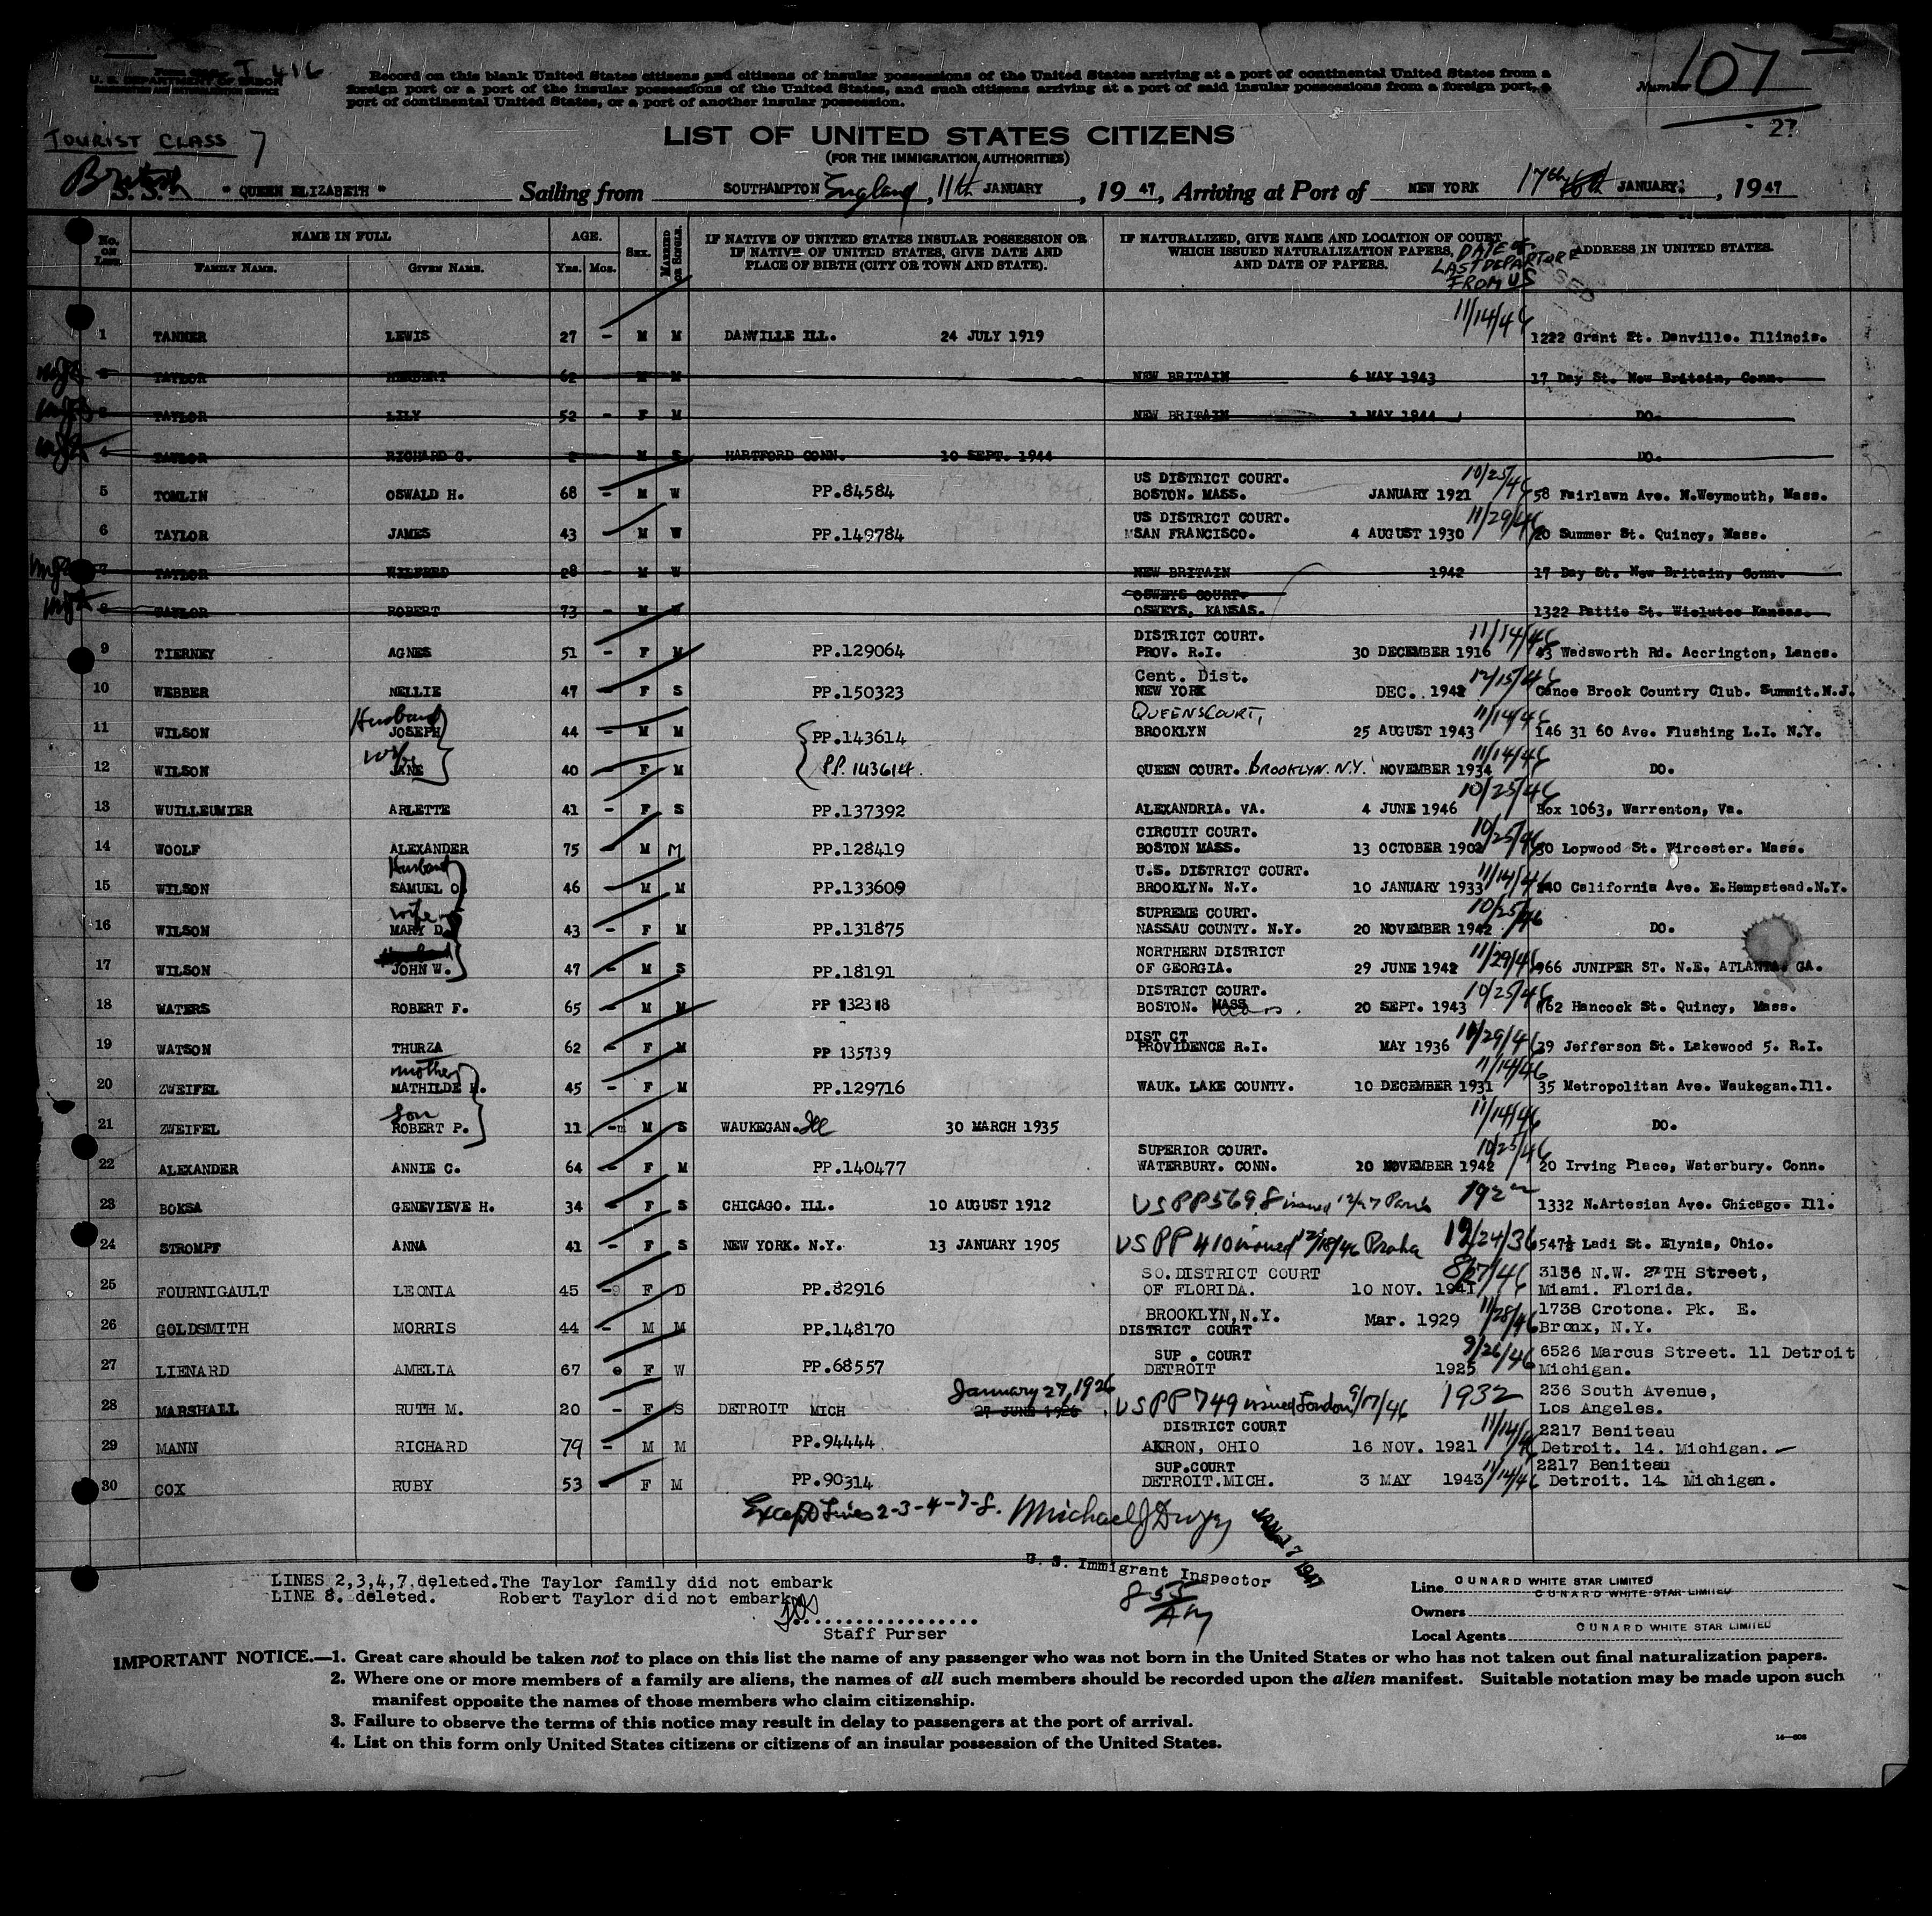 U. S. DEPARTMENT OF LABOR
IMMIGRATION AND NATURALIZATION SERVICE
I 416
Record on this blank United States citizens and citizens of insular possessions of the United States arriving at a port of continental United States from a
foreign port or a port of the insular possessions of the United States, and such citizens arriving at a port of said insular possessions from a foreign port, a
port of continental United States, or a port of another insular possession.
Number 107
27
TOURIST CLASS 7
LIST OF UNITED STATES CITIZENS
(FOR THE IMMIGRATION AUTHORITIES)
British S. S. " QUEEN ELIZABETH " Sailing from SOUTHAMPTON England, 11th JANUARY, 19 47, Arriving at Port of NEW YORK 17th JANUARY, 19 47
No. on List. NAME IN FULL AGE. SEX. MARRIED OR SINGLE. IF NATIVE OF UNITED STATES INSULAR POSSESSION OR IF NATIVE OF UNITED STATES, GIVE DATE AND PLACE OF BIRTH (CITY OR TOWN AND STATE). IF NATURALIZED, GIVE NAME AND LOCATION OF COURT WHICH ISSUED NATURALIZATION PAPERS, AND DATE OF PAPERS. DATE OF LAST DEPARTURE FROM US ADDRESS IN UNITED STATES.
FAMILY NAME. GIVEN NAME. Yrs. Mos.
1 TANNER LEWIS 27 - M M DANVILLE ILL. 24 JULY 1919 11/14/46 1222 Grant St. Danville. Illinois.
2 TAYLOR HERBERT 62 - M M NEW BRITAIN 6 MAY 1943 17 Day St. New Britain, Conn.
3 TAYLOR LILY 52 - F M NEW BRITAIN 1 MAY 1944 DO.
4 TAYLOR RICHARD G. 2 - M S HARTFORD CONN. 10 SEPT. 1944 DO.
5 TOMLIN OSWALD H. 68 - M W PP.84584 US DISTRICT COURT. BOSTON. MASS. JANUARY 1921 10/25/46 58 Fairlawn Ave. N.Weymouth, Mass.
6 TAYLOR JAMES 43 - M W PP.149784 US DISTRICT COURT. SAN FRANCISCO. 4 AUGUST 1930 11/29/46 20 Summer St. Quincy, Mass.
7 TAYLOR WILFRED 28 - M W NEW BRITAIN 1942 17 Day St. New Britain, Conn.
8 TAYLOR ROBERT 73 - M W OSWEYS COURT. OSWEYS, KANSAS. 1322 Pattie St. Wielutes Kansas.
9 TIERNEY AGNES 51 - F M PP.129064 DISTRICT COURT. PROV. R.I. 30 DECEMBER 1916 11/14/46 43 Wadsworth Rd. Accrington, Lancs.
10 WEBBER NELLIE 47 - F S PP.150323 Cent. Dist. NEW YORK DEC. 1942 12/15/46 Canoe Brook Country Club. Summit.N.J.
11 WILSON Husband JOSEPH 44 - M M PP.143614 QUEENS COURT, BROOKLYN 25 AUGUST 1943 11/14/46 146 31 60 Ave. Flushing L.I. N.Y.
12 WILSON Wife JANE 40 - F M PP.143614. QUEEN COURT. BROOKLYN. N.Y. NOVEMBER 1934 11/14/46 DO.
13 WUILLEUMIER ARLETTE 41 - F S PP.137392 ALEXANDRIA. VA. 4 JUNE 1946 10/25/46 Box 1063, Warrenton, Va.
14 WOOLF ALEXANDER 75 - M M PP.128419 CIRCUIT COURT. BOSTON MASS. 13 OCTOBER 1902 10/25/46 30 Lopwood St. Wircester. Mass.
15 WILSON Husband SAMUEL O. 46 - M M PP.133609 U.S. DISTRICT COURT. BROOKLYN. N.Y. 10 JANUARY 1933 11/14/46 240 California Ave. E.Hempstead.N.Y.
16 WILSON Wife MARY D. 43 - F M PP.131875 SUPREME COURT. NASSAU COUNTY. N.Y. 20 NOVEMBER 1942 10/25/46 DO.
17 WILSON JOHN W. 47 - M S PP.18191 NORTHERN DISTRICT OF GEORGIA. 29 JUNE 1942 11/29/46 966 JUNIPER ST. N.E. ATLANTA. GA.
18 WATERS ROBERT F. 65 - M M PP 132318 DISTRICT COURT. BOSTON. MASS 20 SEPT. 1943 10/25/46 162 Hancock St. Quincy, Mass.
19 WATSON THURZA 62 - F M PP 135739 DIST CT PROVIDENCE R.I. MAY 1936 10/29/46 39 Jefferson St. Lakewood 5. R.I.
20 ZWEIFEL Mother MATHILDE 45 - F M PP.129716 WAUK. LAKE COUNTY. 10 DECEMBER 1931 11/14/46 35 Metropolitan Ave. Waukegan.Ill.
21 ZWEIFEL Son ROBERT P. 11 - M S WAUKEGAN. Ill 30 MARCH 1935 11/14/46 DO.
22 ALEXANDER ANNIE C. 64 - F M PP.140477 SUPERIOR COURT. WATERBURY. CONN. 20 NOVEMBER 1942 10/25/46 20 Irving Place, Waterbury. Conn.
23 BOKSA GENEVIEVE H. 34 - F S CHICAGO. ILL. 10 AUGUST 1912 US PP 5698 issued 12/27 Paris 1332 N.Artesian Ave. Chicago. Ill.
24 STROMPF ANNA 41 - F S NEW YORK. N.Y. 13 JANUARY 1905 US PP 410 issued 12/18/46 Praha 12/24/36 547½ Ladi St. Elynia, Ohio.
25 FOURNIGAULT LEONIA 45 - F D PP.82916 SO. DISTRICT COURT OF FLORIDA. 10 NOV. 1941 8/27/46 3136 N.W. 27TH Street, Miami. Florida.
26 GOLDSMITH MORRIS 44 - M M PP.148170 BROOKLYN,N.Y. DISTRICT COURT Mar. 1929 11/28/46 1738 Crotona. Pk. E. Bronx, N.Y.
27 LIENARD AMELIA 67 F W PP.68557 SUP. COURT DETROIT 1925 9/26/46 6526 Marcus Street. 11 Detroit Michigan.
28 MARSHALL RUTH M. 20 - F S DETROIT MICH January 27, 1926 27 JUNE 1926 US PP 749 issued London 9/17/46 1932 236 South Avenue, Los Angeles.
29 MANN RICHARD 79 - M M PP.94444 DISTRICT COURT AKRON, OHIO 16 NOV. 1921 11/14/46 2217 Beniteau Detroit. 14. Michigan.
30 COX RUBY 53 - F M PP.90314 SUP.COURT DETROIT.MICH. 3 MAY 1943 11/14/46 2217 Beniteau Detroit. 14 Michigan.
Except Lines 2-3-4-7-8. Michael J Dwyer JAN 17 1947
U. S. Immigrant Inspector
8 55 AM
LINES 2,3,4,7,deleted.The Taylor family did not embark
LINE 8. deleted. Robert Taylor did not embark.
Staff Purser
Line CUNARD WHITE STAR LIMITED
CUNARD WHITE STAR LIMITED
Owners
Local Agents CUNARD WHITE STAR LIMITED
IMPORTANT NOTICE.—1. Great care should be taken not to place on this list the name of any passenger who was not born in the United States or who has not taken out final naturalization papers.
2. Where one or more members of a family are aliens, the names of all such members should be recorded upon the alien manifest. Suitable notation may be made upon such
manifest opposite the names of those members who claim citizenship.
3. Failure to observe the terms of this notice may result in delay to passengers at the port of arrival.
4. List on this form only United States citizens or citizens of an insular possession of the United States.